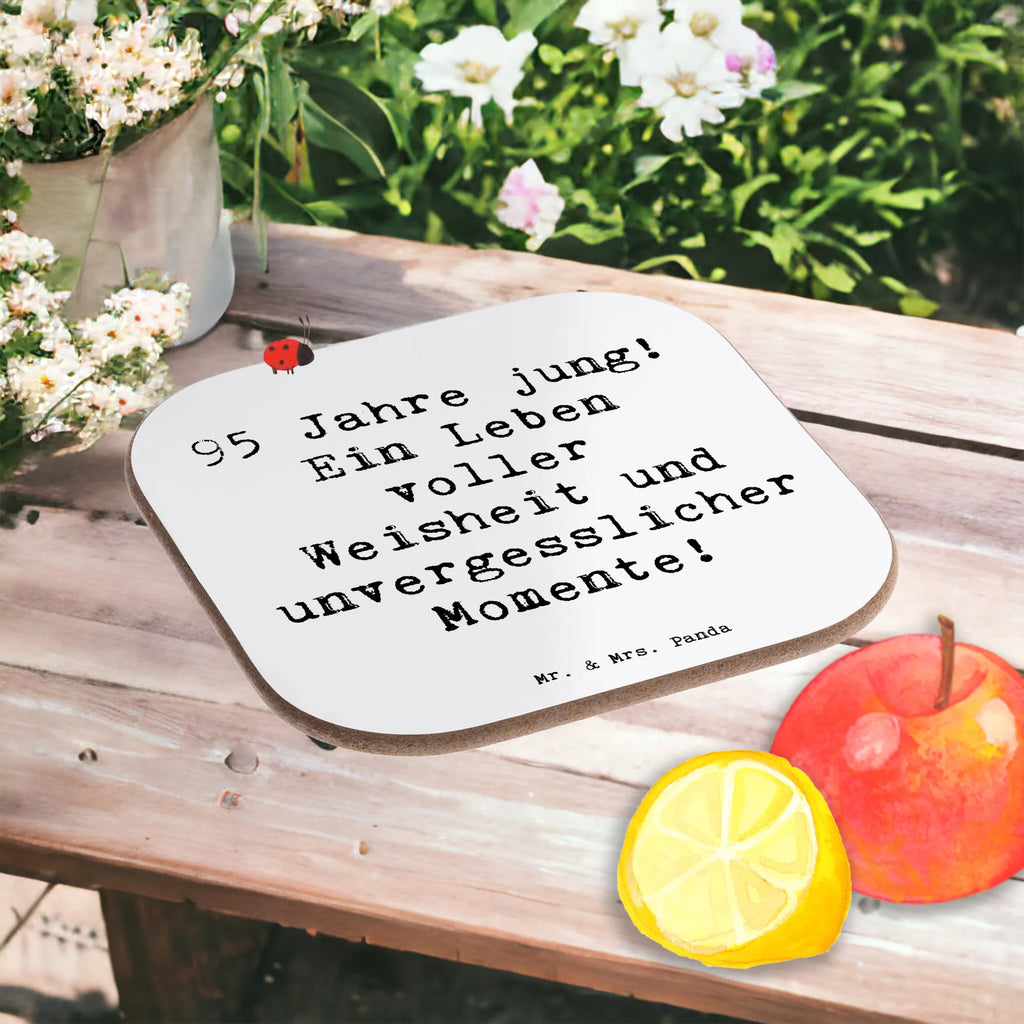 95 Jahre jung!
Ein Leben
voller
Weisheit und
unvergesslicher
Momente!
Mr. & Mrs. Panda